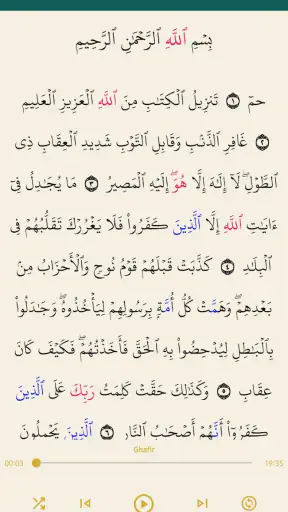 بِسْمِ ٱللَّهِ ٱلرَّحْمَٰنِ ٱلرَّحِيمِ
حمٓ ١ تَنزِيلُ ٱلْكِتَٰبِ مِنَ ٱللَّهِ ٱلْعَزِيزِ ٱلْعَلِيمِ
٢ غَافِرِ ٱلذَّنۢبِ وَقَابِلِ ٱلتَّوْبِ شَدِيدِ ٱلْعِقَابِ ذِى
ٱلطَّوْلِ ۖ لَآ إِلَٰهَ إِلَّا هُوَ ۖ إِلَيْهِ ٱلْمَصِيرُ ٣ مَا يُجَٰدِلُ فِىٓ
ءَايَٰتِ ٱللَّهِ إِلَّا ٱلَّذِينَ كَفَرُوا۟ فَلَا يَغْرُرْكَ تَقَلُّبُهُمْ فِى
ٱلْبِلَٰدِ ٤ كَذَّبَتْ قَبْلَهُمْ قَوْمُ نُوحٍ وَٱلْأَحْزَابُ مِنۢ
بَعْدِهِمْ ۖ وَهَمَّتْ كُلُّ أُمَّةٍۭ بِرَسُولِهِمْ لِيَأْخُذُوهُ ۖ وَجَٰدَلُوا۟
بِٱلْبَٰطِلِ لِيُدْحِضُوا۟ بِهِ ٱلْحَقَّ فَأَخَذْتُهُمْ ۖ فَكَيْفَ كَانَ
عِقَابِ ٥ وَكَذَٰلِكَ حَقَّتْ كَلِمَتُ رَبِّكَ عَلَى ٱلَّذِينَ
كَفَرُوٓا۟ أَنَّهُمْ أَصْحَٰبُ ٱلنَّارِ ٦ ٱلَّذِينَ يَحْمِلُونَ
Ghafir
00:03 19:35